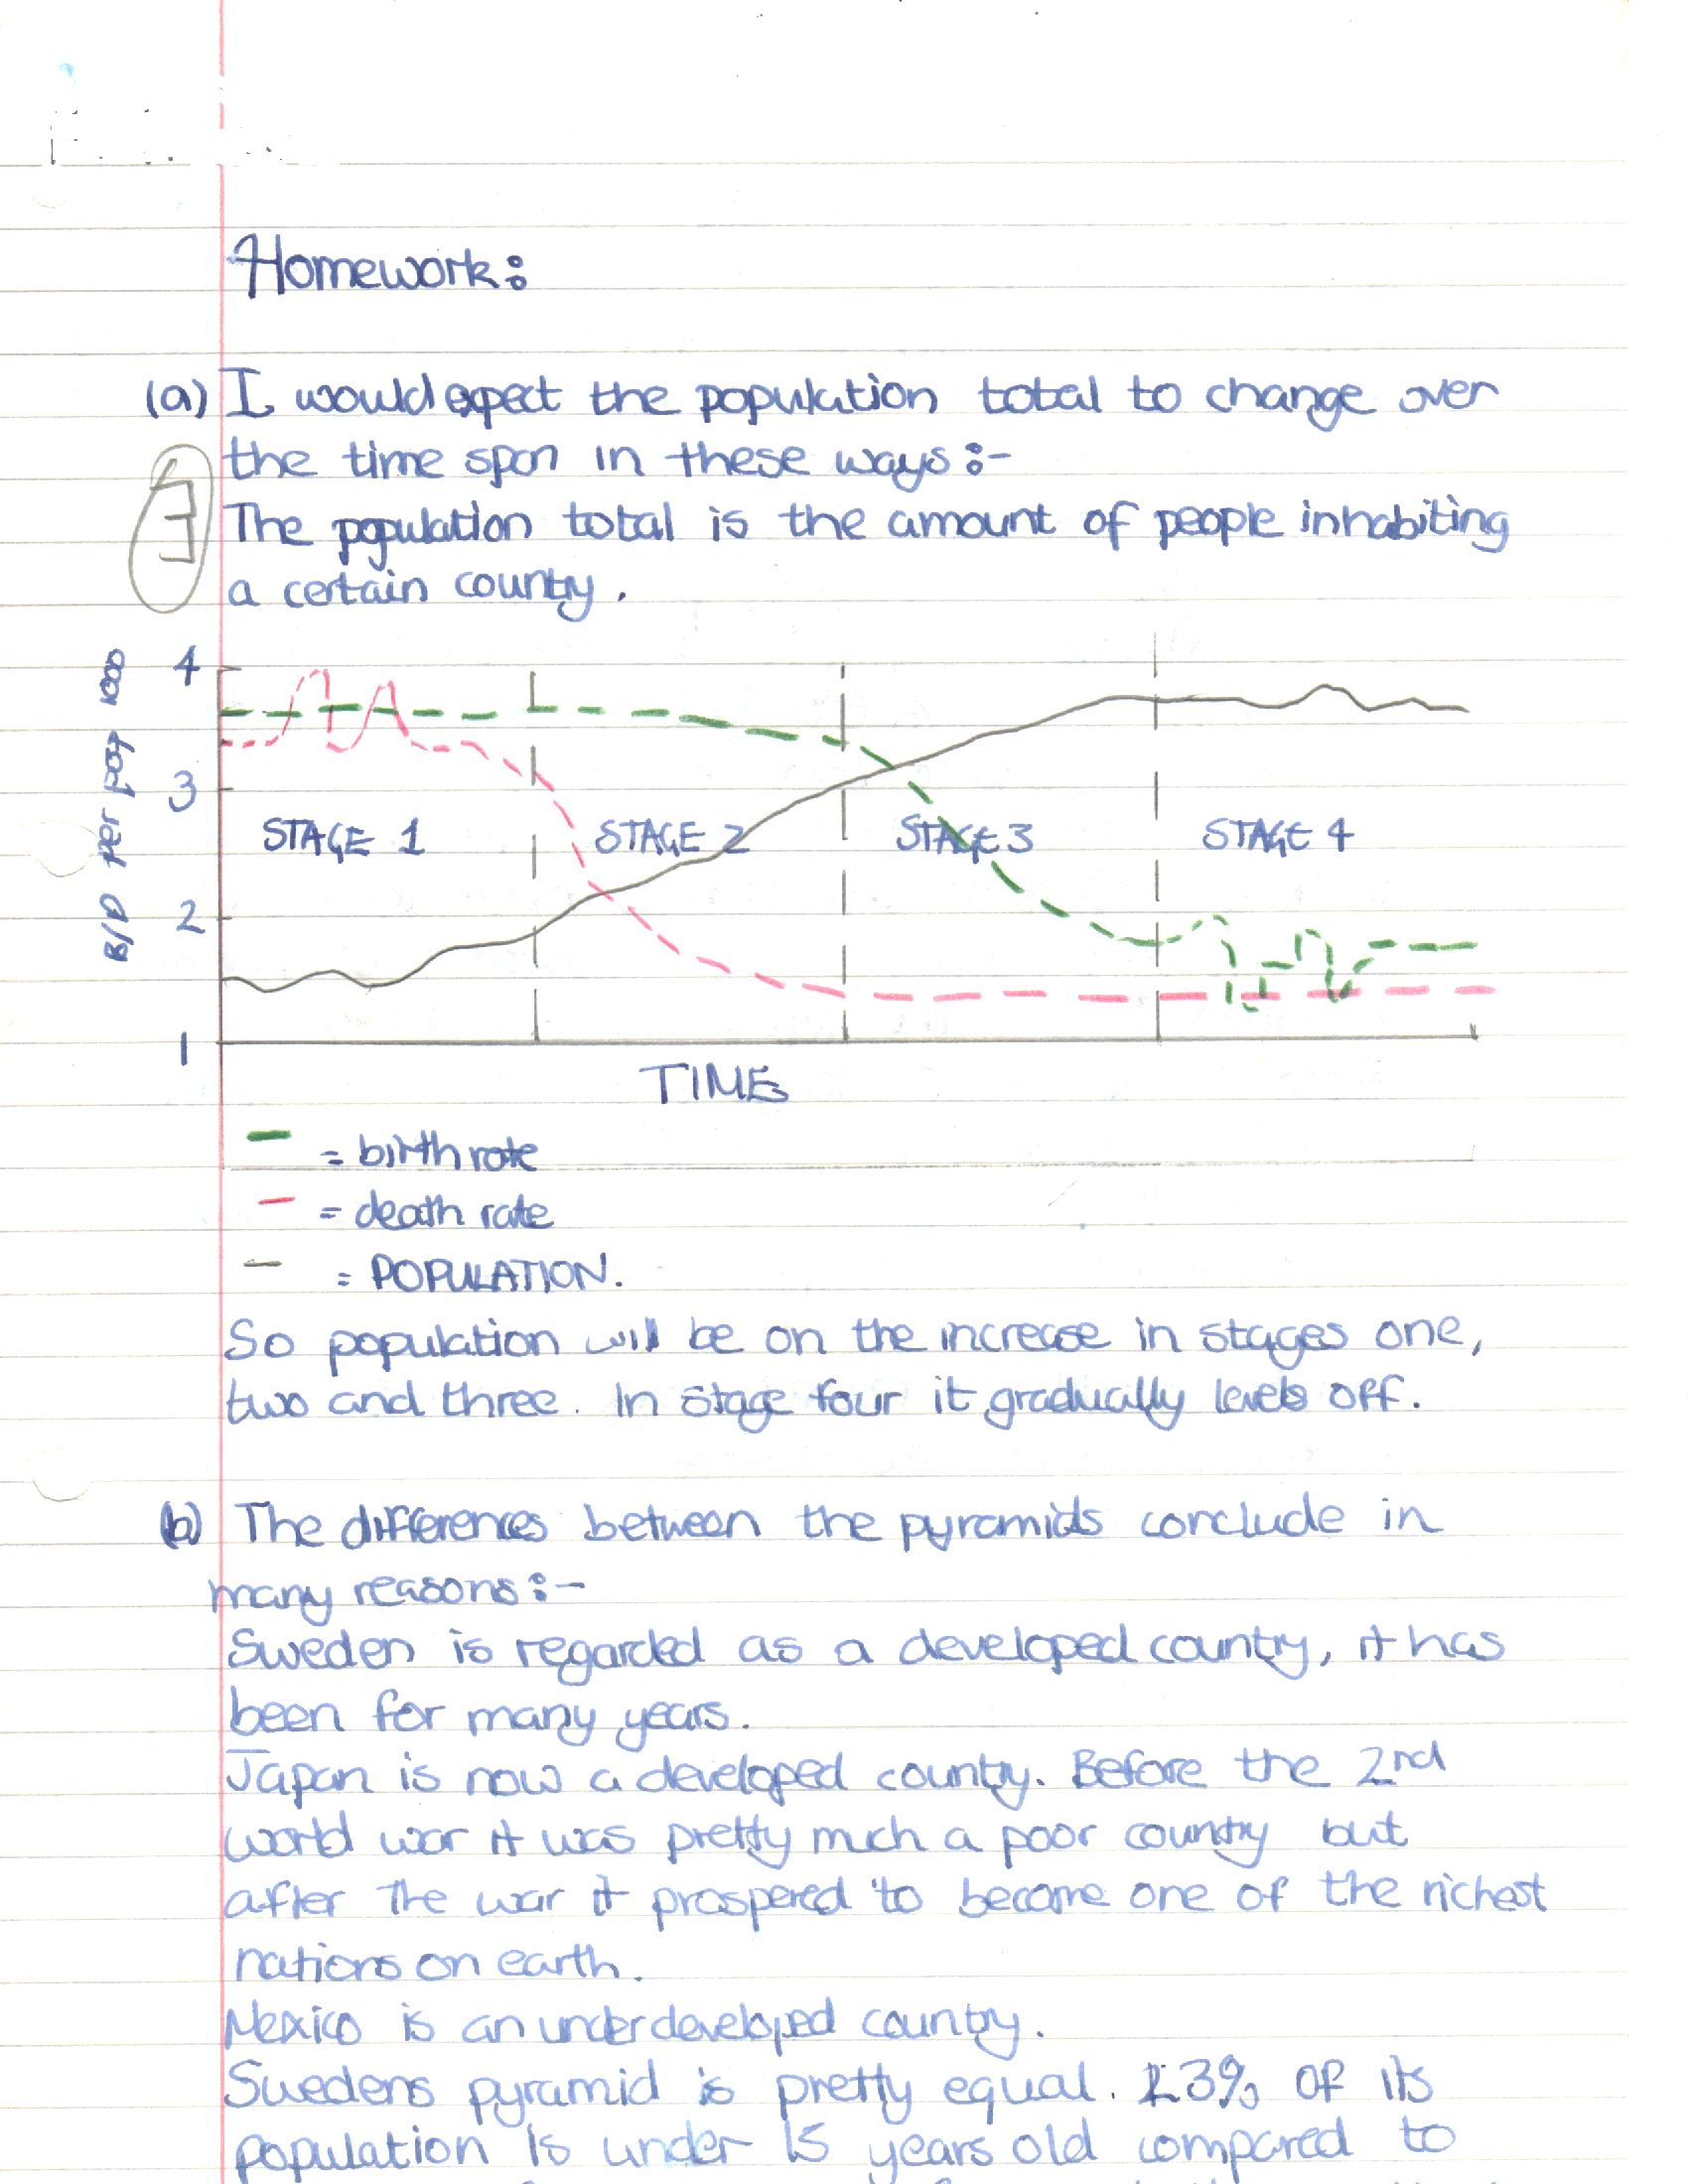 Homework:
(a) I would expect the population total to change over
the time span in these ways:-
The population total is the amount of people inhabiting
a certain country.
B/D per pop 1000
4
3
2
1
STAGE 1
STAGE 2
STAGE 3
STAGE 4
TIME
= birth rate
= death rate
= POPULATION.
So population will be on the increase in stages one,
two and three. In stage four it gradually levels off.
(b) The differences between the pyramids conclude in
many reasons:-
Sweden is regarded as a developed country, it has
been for many years.
Japan is now a developed country. Before the 2nd
world war it was pretty much a poor country but
after the war it prospered to become one of the richest
nations on earth.
Mexico is an underdeveloped country.
Swedens pyramid is pretty equal. 23% of its
population is under 15 years old compared to